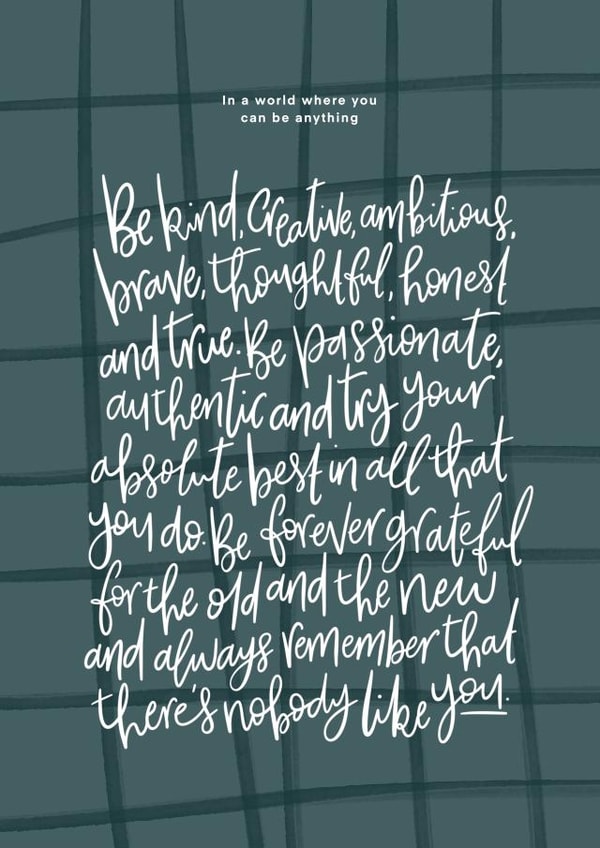 In a world where you
can be anything
Be kind, Creative, ambitious,
brave, thoughtful, honest
and true. Be passionate,
authentic and try your
absolute best in all that
you do. Be forever grateful
for the old and the new
and always remember that
there's nobody like you.